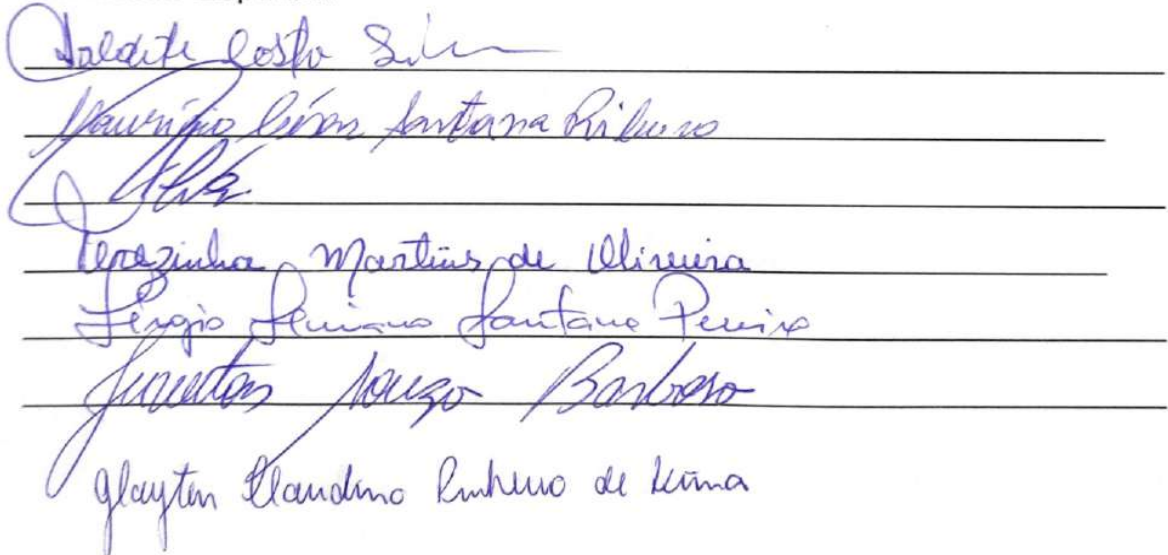 Valdete Costo Silva
Maurício César Santana Ribeiro
Terezinha Martins de Oliveira
Sérgio Santana Pereira
Souza Barboso
Glayton Claudino Pinheiro de Lima